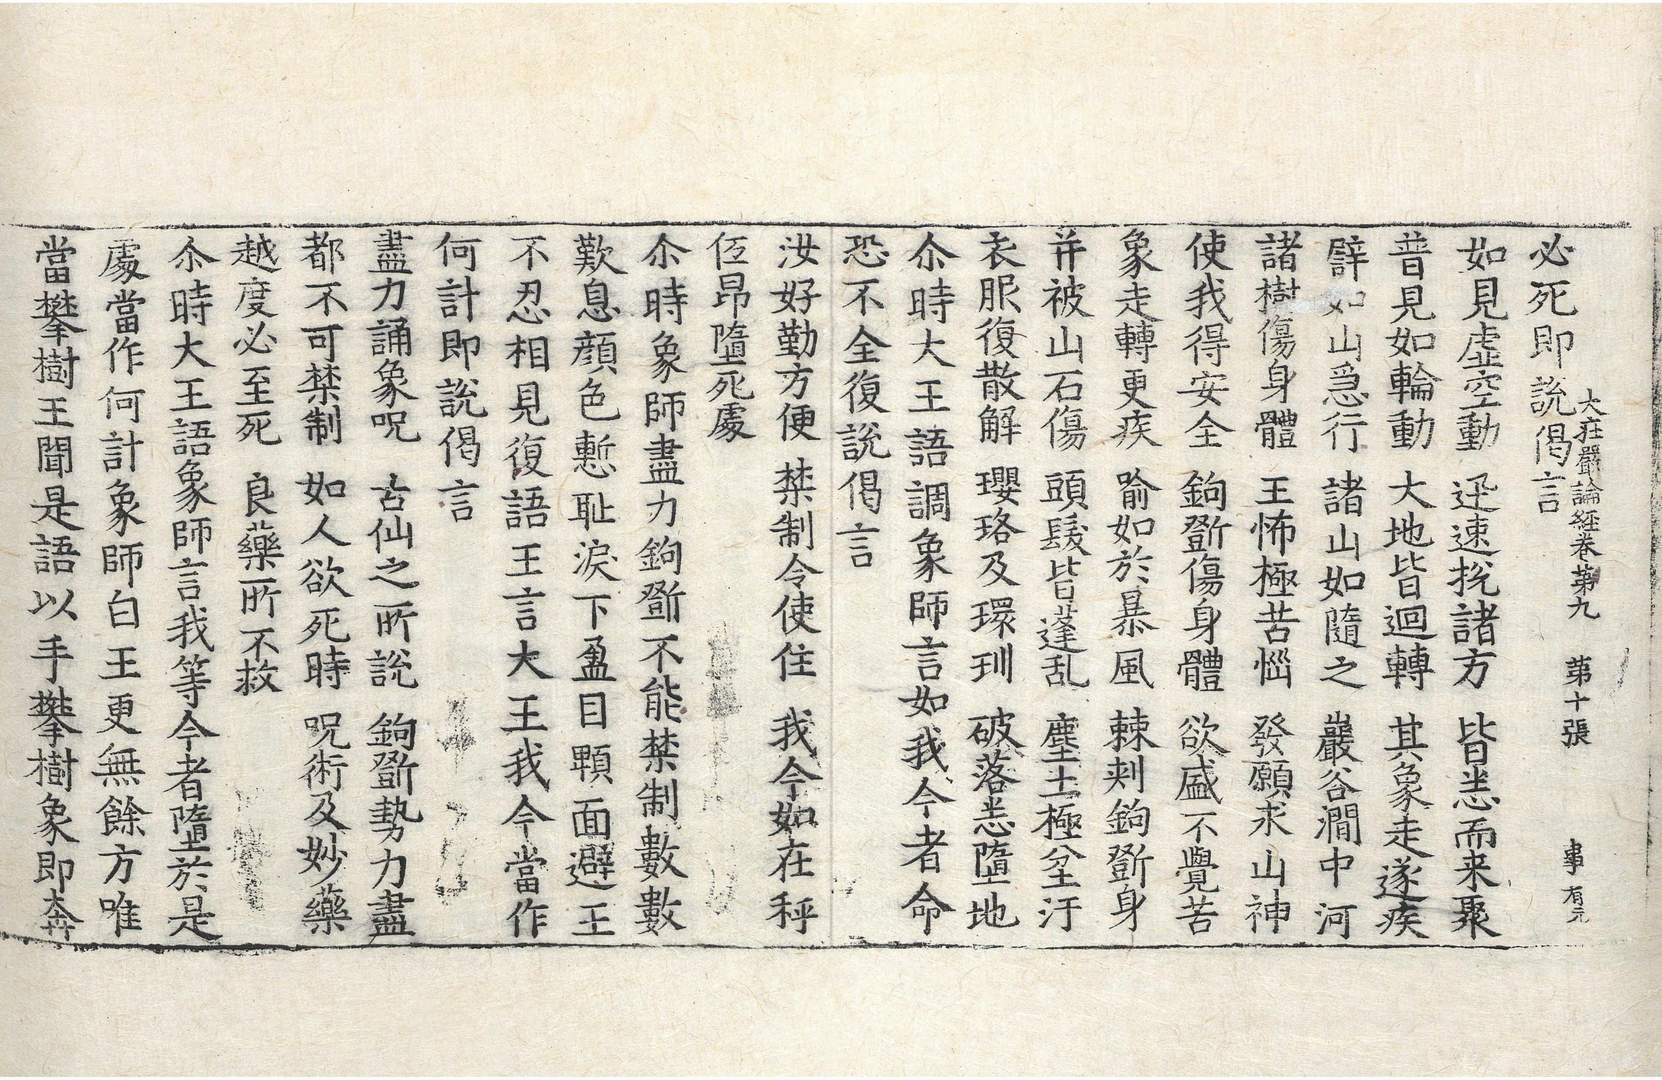 大莊嚴論經卷第九　第十張　事　有元
必死即說偈言
如見虛空動　迅速挽諸方　皆悉而来聚
普見如輪動　大地皆迴轉　其象走遂疾
譬如山急行　諸山如隨之　巖谷澗中河
諸樹傷身體　王怖極苦惱　發願求山神
使我得安全　鉤斵傷身體　欲盛不覺苦
象走轉更疾　喻如於暴風　棘刾鉤斵身
并被山石傷　頭髮皆蓬乱　塵土極坌汙
衣服復散解　瓔珞及環玔　破落悉墮地
尒時大王語調象師言如我今者命
恐不全復說偈言
汝好勤方便　禁制令使住　我今如在秤
低昂墮死處
尒時象師盡力鉤斵不能禁制數數
歎息顔色慙耻淚下盈目顋面避王
不忍相見復語王言大王我今當作
何計即說偈言
盡力誦象呪　古仙之所說　鉤斵勢力盡
都不可禁制　如人欲死時　呪術及妙藥
越度必至死　良藥所不救
尒時大王語象師言我等今者墮於是
處當作何計象師白王更無餘方唯
當攀樹王聞是語以手攀樹象即奔